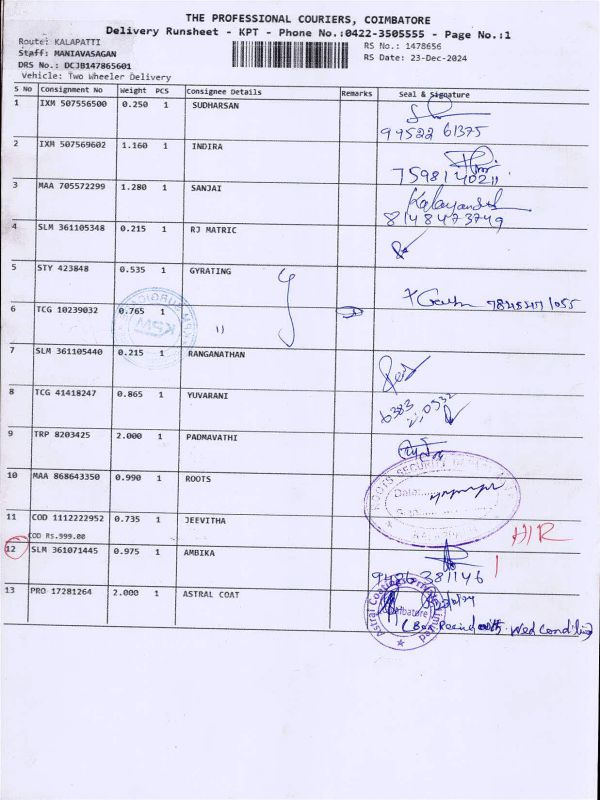 THE PROFESSIONAL COURIERS, COIMBATORE
Delivery Runsheet - KPT - Phone No.:0422-3505555 - Page No.:1
Route: KALAPATTI
RS No.: 1478656
Staff: MANIAVASAGAN
RS Date: 23-Dec-2024
DRS No.: DCJB147865601
Vehicle: Two Wheeler Delivery
S No Consignment No Weight PCS Consignee Details Remarks Seal & Signature
1 IXM 507556500 0.250 1 SUDHARSAN
99522 61375
2 IXM 507569602 1.160 1 INDIRA
7598140211
3 MAA 705572299 1.280 1 SANJAI
8148473749
4 SLM 361105348 0.215 1 RJ MATRIC
5 STY 423848 0.535 1 GYRATING
6 TCG 10239032 0.765 1 11
KSW
7 SLM 361105440 0.215 1 RANGANATHAN
8 TCG 41418247 0.865 1 YUVARANI
6383
9 TRP 8203425 2.000 1 PADMAVATHI
10 MAA 868643350 0.990 1 ROOTS
ROOTS SECURITY
Date
11 COD 1112222952 0.735 1 JEEVITHA
COD RS.999.00
H/R
12 SLM 361071445 0.975 1 AMBIKA
13 PRO 17281264 2.000 1 ASTRAL COAT
Astral Coat
Coimbatore
(Box Recivd with Wed Condition)